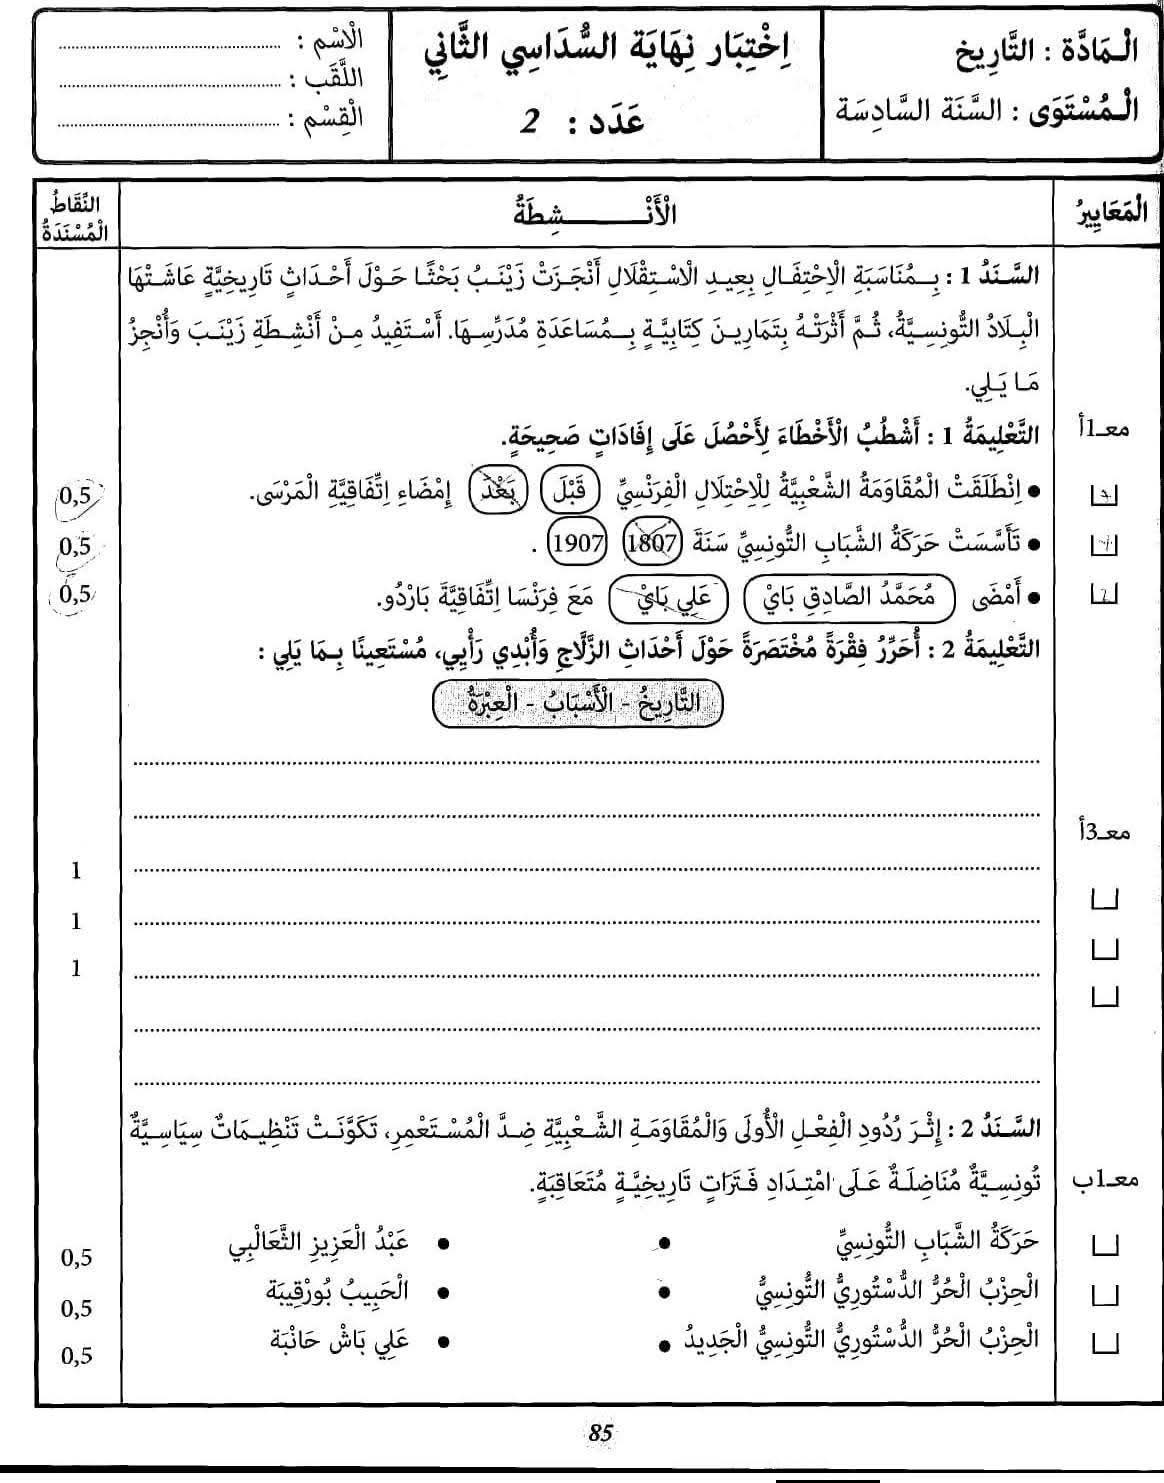 الْـمَادَّة : التَّارِيخ
الْـمُسْتَوَى : السَّنَة السَّادِسَة
اِخْتِبَار نِهَايَة السُّدَاسِي الثَّانِي
عَدَد : 2
الْاسْم : ..............................
اللَّقَب : ..............................
الْقِسْم : ..............................
الْمَعَايِيرُ
الْأَنْـــــــــشِطَةُ
النِّقَاطُ الْمُسْنَدَةُ
السَّـنَدُ 1 : بِـمُنَاسَبَةِ الْاِحْتِفَـالِ بِعِيـدِ الْاسْـتِقْلَالِ أَنْجَـزَتْ زَيْنَـبُ بَحْثًـا حَـوْلَ أَحْـدَاثٍ تَارِيخِيَّةٍ عَاشَـتْهَا
الْبِـلَادُ التُّونِسِـيَّةُ، ثُـمَّ أَثْرَتْـهُ بِتَمَارِيـنَ كِتَابِيَّـةٍ بِـمُسَاعَدَةِ مُدَرِّسِـهَا. أَسْـتَفِيدُ مِـنْ أَنْشِـطَةِ زَيْنَـبَ وَأُنْجِزُ
مَـا يَـلِي.
معـ1أ
التَّعْلِيمَةُ 1 : أَشْطُبُ الْأَخْطَاءَ لِأَحْصُلَ عَلَى إِفَادَاتٍ صَحِيحَةٍ.
• اِنْطَلَقَتْ الْمُقَاوَمَةُ الشَّعْبِيَّةُ لِلْاِحْتِلَالِ الْفِرَنْسِيِّ قَبْلَ بَعْدَ إِمْضَاءِ اِتِّفَاقِيَّةِ الْمَرْسَى.
0,5
• تَأَسَّسَتْ حَرَكَةُ الشَّبَابِ التُّونِسِيِّ سَنَةَ 1807 1907 .
0,5
• أَمْضَى مُحَمَّدُ الصَّادِقِ بَايْ عَلِي بَايْ مَعَ فِرَنْسَا اِتِّفَاقِيَّةَ بَارْدُو.
0,5
التَّعْلِيمَةُ 2 : أُحَرِّرُ فِقْرَةً مُخْتَصَرَةً حَوْلَ أَحْدَاثِ الزَّلَّاجِ وَأُبْدِي رَأْيِي، مُسْتَعِينًا بِـمَا يَلِي :
التَّارِيخُ - الْأَسْبَابُ - الْعِبْرَةُ
معـ3أ
1
1
1
السَّـنَدُ 2 : إِثْـرَ رُدُودِ الْفِعْـلِ الْأُولَى وَالْمُقَاوَمَـةِ الشَّـعْبِيَّةِ ضِـدَّ الْمُسْـتَعْمِرِ، تَكَوَّنَـتْ تَنْظِيمَـاتٌ سِيَاسِـيَّةٌ
تُونِسِـيَّةٌ مُنَاضِلَـةٌ عَـلَى امْتِـدَادِ فَـتَرَاتٍ تَارِيخِيَّـةٍ مُتَعَاقِبَةٍ.
معـ1ب
حَرَكَةُ الشَّبَابِ التُّونِسِيِّ • • عَبْدُ الْعَزِيزِ الثَّعَالْبِي
0,5
الْحِزْبُ الْحُرُّ الدُّسْتُورِيُّ التُّونِسِيُّ • • الْحَبِيبُ بُورْقِيبَة
0,5
الْحِزْبُ الْحُرُّ الدُّسْتُورِيُّ التُّونِسِيُّ الْجَدِيدُ • • عَلِي بَاشْ حَانْبَة
0,5
85